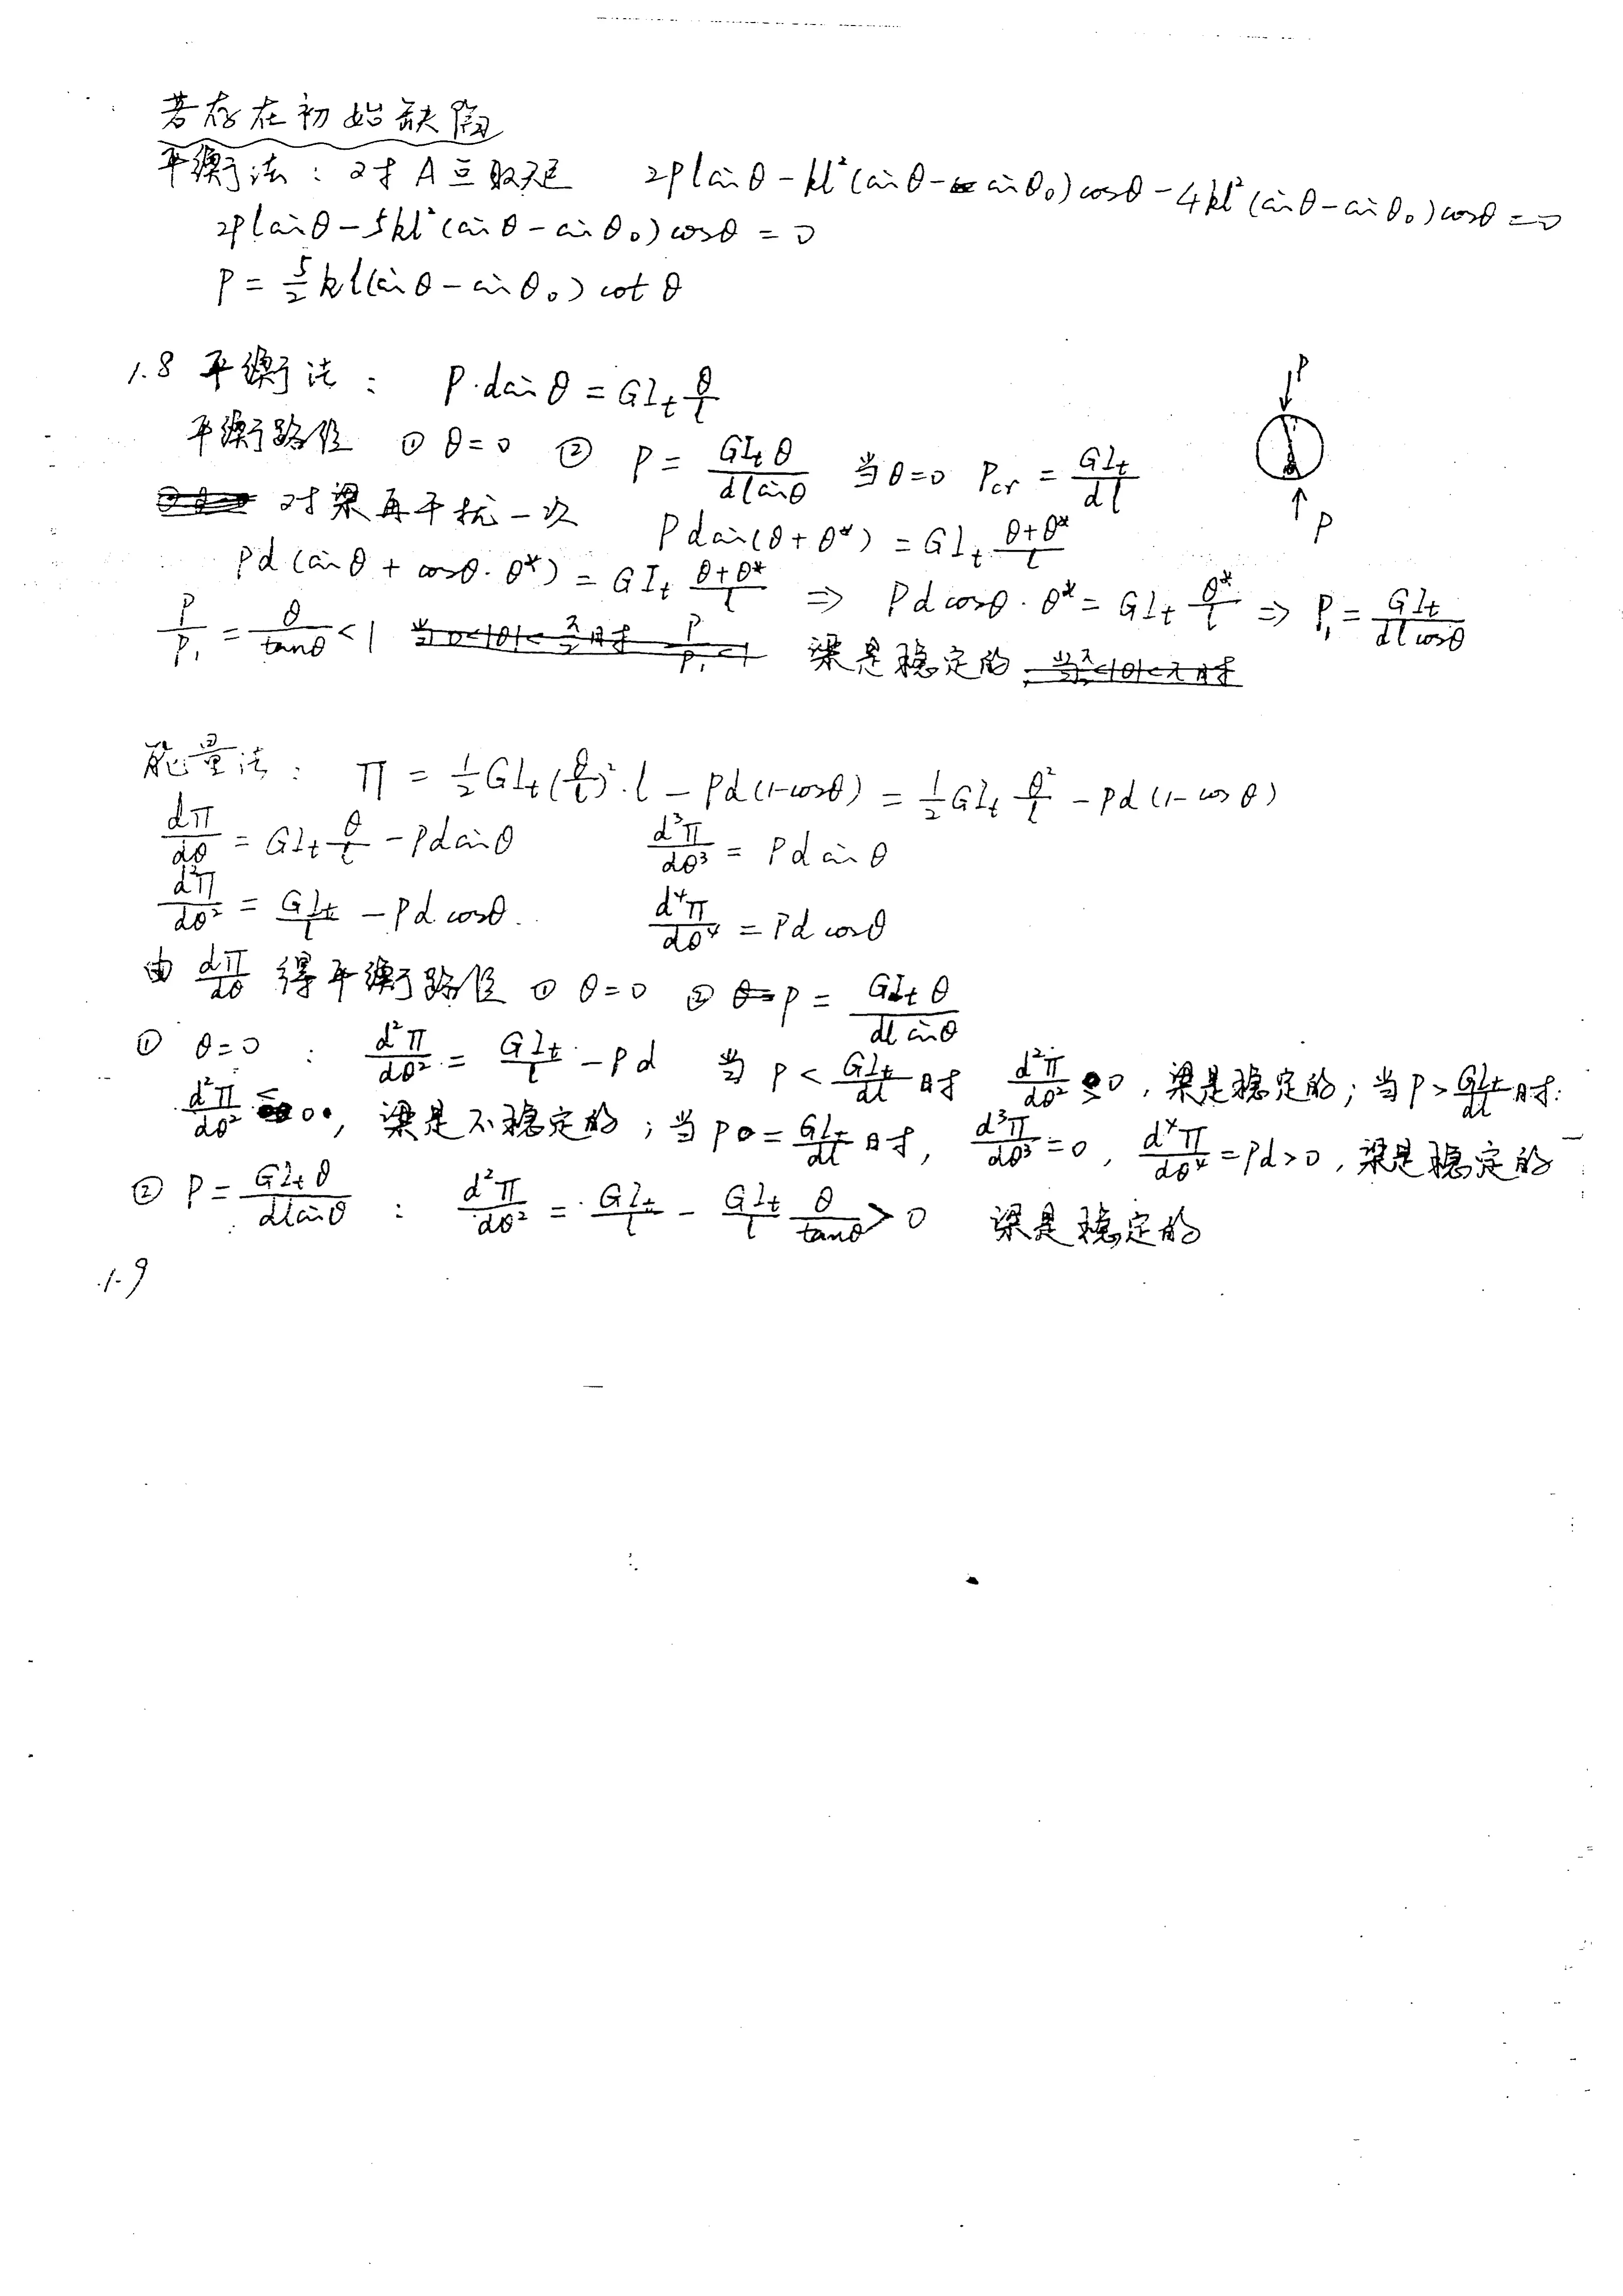 若存在初始缺陷
平衡法：对A点取矩 2Plsinθ-kl²(sinθ-sinθ₀)cosθ-4kl²(sinθ-sinθ₀)cosθ=0
2Plsinθ-5kl²(sinθ-sinθ₀)cosθ=0
P=5/2kl(sinθ-sinθ₀)cotθ
1.8 平衡法： P·dsinθ=GIₜθ/l
P
平衡路径 ① θ=0 ② P=GIₜθ/(dlsinθ) 当θ=0 Pcr=GIₜ/(dl)
P
对梁再干扰一次 Pdsin(θ+θ*)=GIₜ(θ+θ*)/l
Pd(sinθ+cosθ·θ*)=GIₜ(θ+θ*)/l ⇒ Pdcosθ·θ*=GIₜθ*/l ⇒ P₁=GIₜ/(dlcosθ)
P/P₁=θ/tanθ<1 梁是稳定的
能量法： Π=1/2GIₜ(θ/l)²·l-Pd(1-cosθ)=1/2GIₜθ²/l-Pd(1-cosθ)
dΠ/dθ=GIₜθ/l-Pdsinθ d³Π/dθ³=Pdsinθ
d²Π/dθ²=GIₜ/l-Pdcosθ. d⁴Π/dθ⁴=Pdcosθ
由dΠ/dθ得平衡路径 ① θ=0 ② P=GIₜθ/(dlsinθ)
① θ=0： d²Π/dθ²=GIₜ/l-Pd 当P<GIₜ/(dl)时 d²Π/dθ² 0，梁是稳定的；当P>GIₜ/(dl)时.
d²Π/dθ² 0，梁是不稳定的；当P=GIₜ/(dl)时，d³Π/dθ³=0，d⁴Π/dθ⁴=Pd>0，梁是稳定的
② P=GIₜθ/(dlsinθ)： d²Π/dθ²=GIₜ/l-GIₜ/l θ/tanθ>0 梁是稳定的
1.9